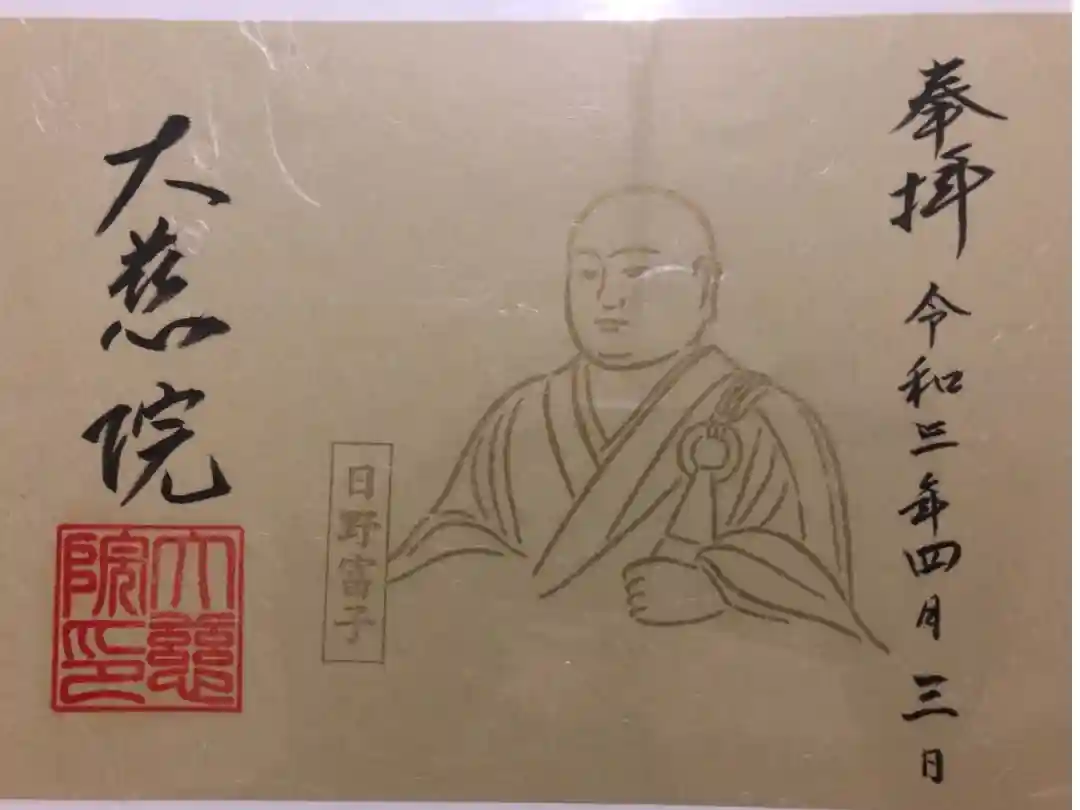 奉拝
令和三年四月三日
日野富子
大慈院
大慈院印